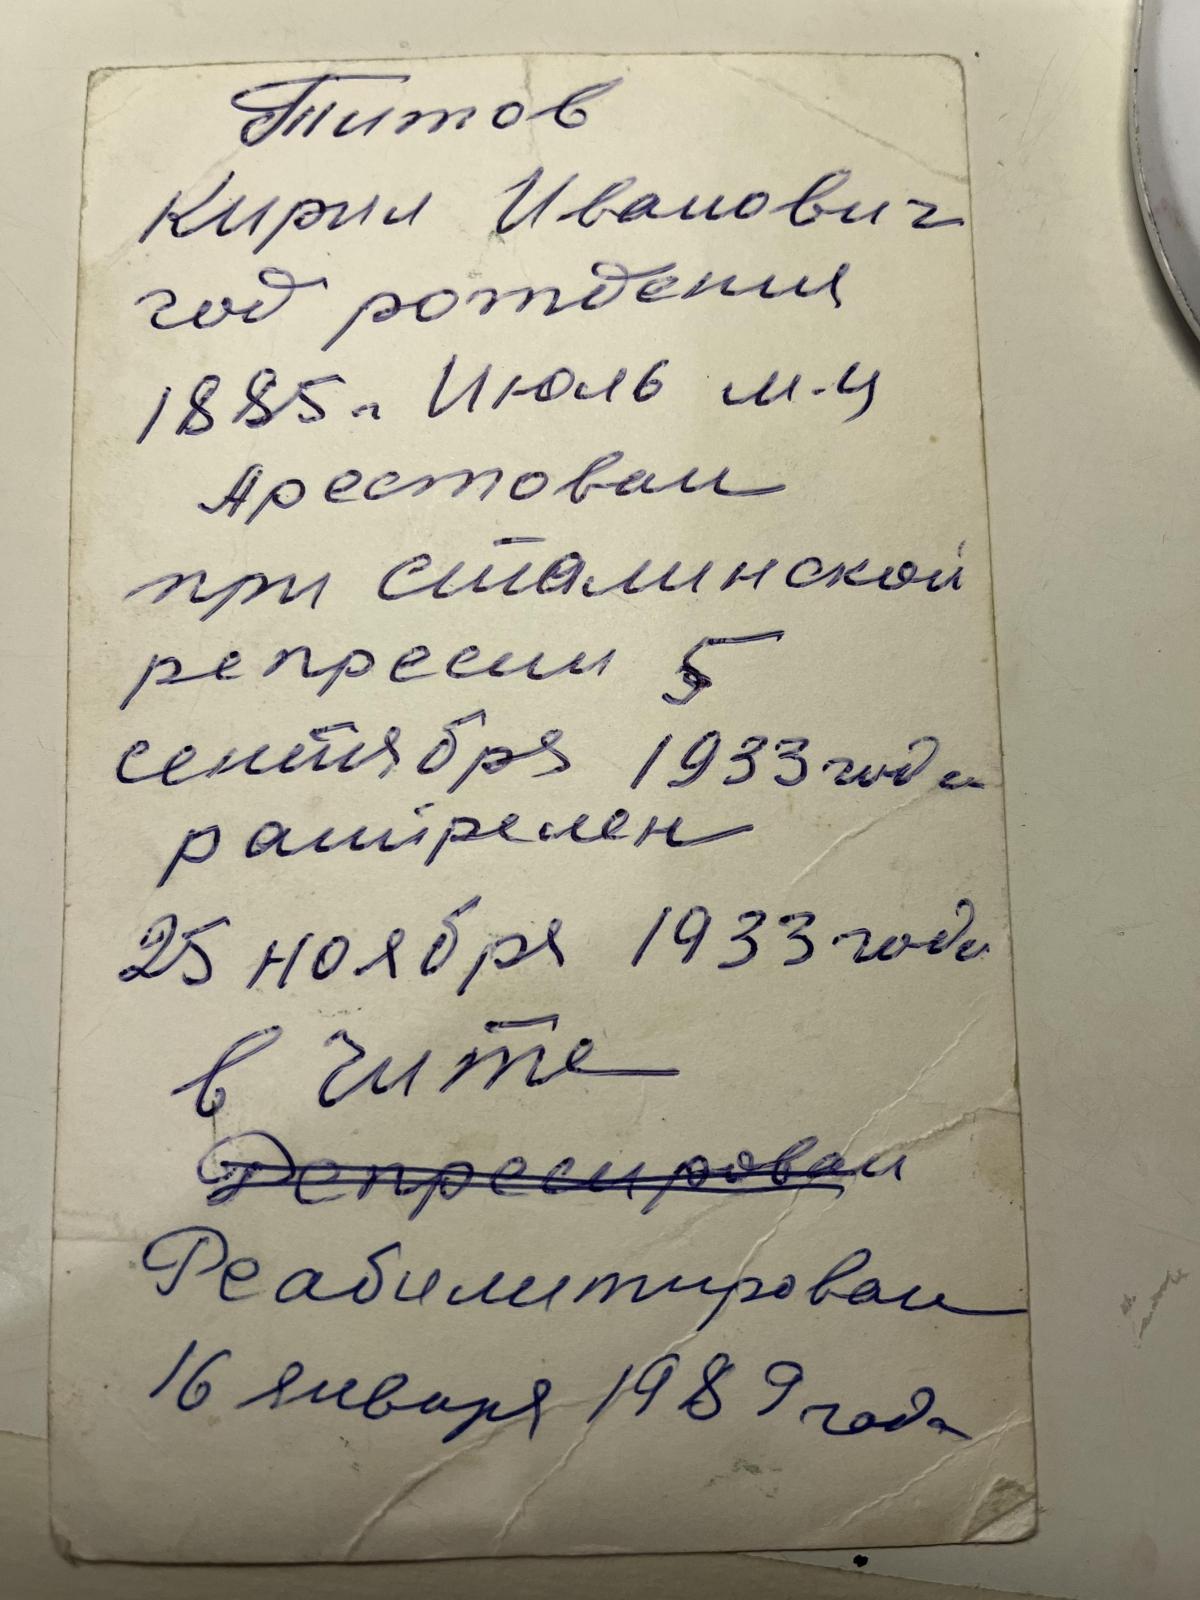 Титов
Кирил Иванович
год рождения
1885г. Июль м-ц
Арестован
при сталинской
репресии 5
сентября 1933 года
растрелен
25 ноября 1933 года
в Чите
Репресирован
Реабилитирован
16 января 1989 года